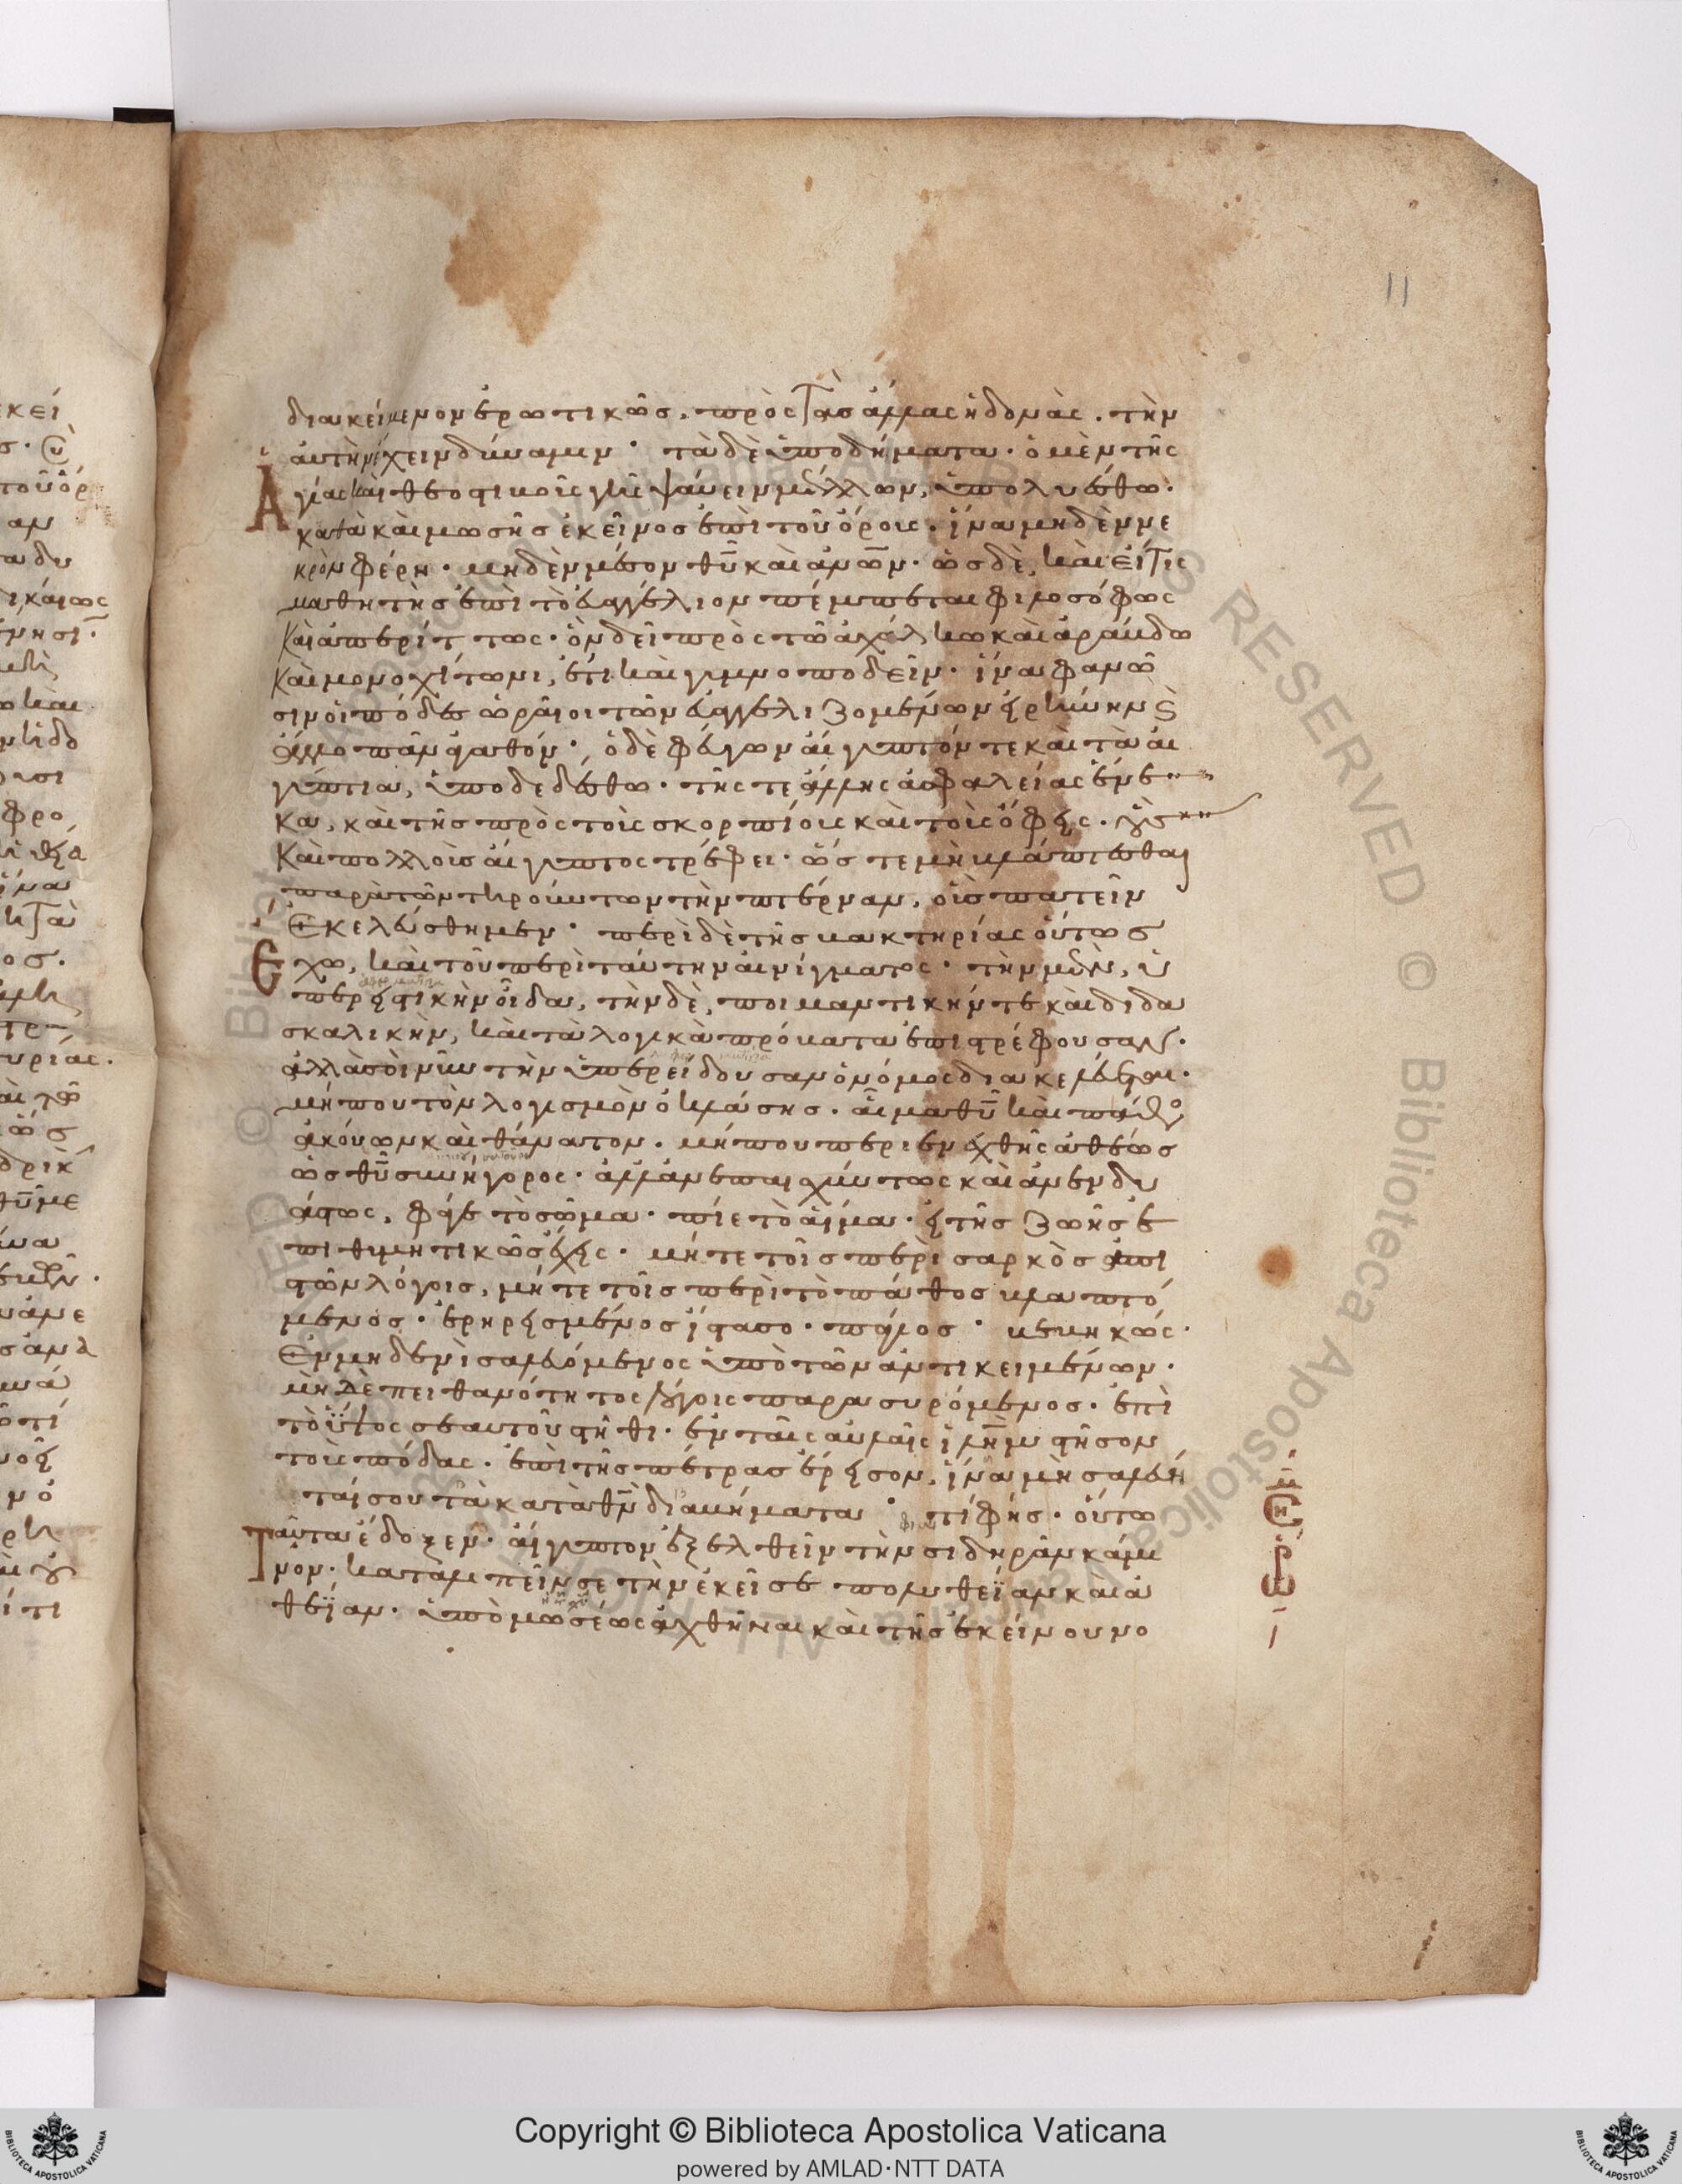 διακείμενον ἐρωτικῶς, πρὸς τὰς ἄλλας ἡδονὰς. τὴν
αὐτὴν ἔχειν δύναμιν· τὰ δὲ ὑποδήματα· ὁ μὲν τῆς
ἁγίας καὶ θεοστιβοῦς γῆς ψαύειν μέλλων, ὑπολυέσθω.
καθὰ καὶ μωσῆς ἐκεῖνος ἐπὶ τοῦ ὄρους. ἵνα μηδὲν νε
κρὸν φέρῃ. μηδὲν μέσον θῦ καὶ ἀνων. ὡς δὲ, καὶ εἴ τις
μαθητὴς ἐπὶ τὸ εὐαγγέλιον πέμπεται φιλοσόφως
καὶ ἀπερίττως. ὃν δεῖ πρὸς τῷ ἀχάλκω καὶ ἀράβδω
καὶ μονοχίτωνι, ἔτι καὶ γυμνοποδεῖν. ἵνα φανῶ
σιν οἱ πόδες ὡραῖοι τῶν εὐαγγελιζομένων εἰρήνην καὶ
ἄλλο πᾶν ἀγαθόν· ὁ δὲ φεύγων αἴγυπτόν τε καὶ τὰ αἰ
γύπτια, ὑποδεδέσθω. τῆς τε ἄλλης ἀσφαλείας ἕνε
κα, καὶ τῆς πρὸς τοὺς σκορπίους καὶ τοὺς ὄφεις. οὓς
καὶ πολλοὺς αἴγυπτος τρέφει. ὥς τε μὴ βλάπτεσθαι
παρὰ τῶν τηρούντων τὴν πτέρναν, οὓς πατεῖν
ἐκελεύσθημεν· περὶ δὲ τῆς βακτηρίας οὕτως
ἔχω, καὶ τοῦ περὶ ταύτην αἰνίγματος· τὴν μὲν, ὑ
περειστικὴν οἶδα, τὴν δὲ, ποιμαντικήν τε καὶ διδα
σκαλικὴν, καὶ τὰ λογικὰ πρόβατα ἐπιστρέφουσαν.
ἀλλὰ σοὶ νῦν τὴν ὑπερείδουσαν ὁ νόμος διακελεύεται.
μή που τὸν λογισμὸν ὀκλάσῃς. αἷμα θῦ καὶ πάθος
ἀκούων καὶ θάνατον. μήπου περιενεχθῇς ἀθέως
ὡς θῦ συνήγορος. ἀλλ' ἀνεπαισχύντως καὶ ἀνενδυ
άστως, φάγε τὸ σῶμα. πίε τὸ αἷμα. εἰ τῆς ζωῆς ἐ
πιθυμητικῶς ἔχεις. μήτε τοῖς περὶ σαρκὸς ἀπι
στῶν λόγοις, μήτε τοῖς περὶ τὸ πάθος βλαπτό
μενος. ἐρηρεισμένος ἵστασο. πάγιος· βεβηκώς.
ἐν μηδενὶ σαλευόμενος ὑπὸ τῶν ἀντικειμένων.
μὴ δὲ πειθανότητος λόγοις παρασυρόμενος. ἐπὶ
τὸ ὕψος σεαυτοῦ στῆθι. ἐν ταῖς αὐλαῖς ἱλημ στῆσον
τοὺς πόδας. ἐπὶ τῆς πέτρας ἔρεισον, ἵνα μὴ σαλεύη
ταί σου τὰ κατὰ θν διαβήματα· τί φής. οὕτω
ταῦτα ἔδοξεν. αἴγυπτον ἐξελθεῖν τὴν σιδηρᾶν κάμι
νον. καταλιπεῖν σε τὴν ἐκεῖσε πολυθεΐαν καὶ ἀ
θεΐαν. ὑπὸ μωσέως ἀχθῆναι καὶ τῆς ἐκείνου νο
11
Copyright © Biblioteca Apostolica Vaticana
powered by AMLAD·NTT DATA